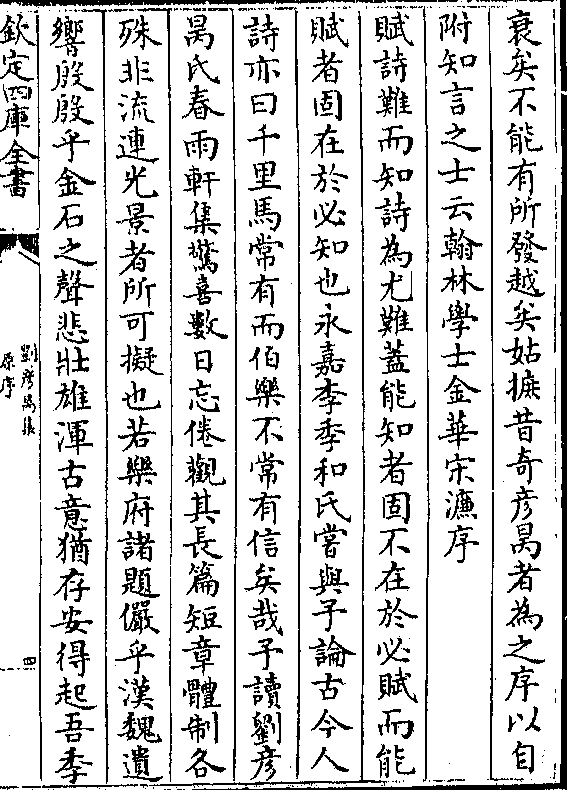 衰矣不能有所發越矣姑摭昔竒彦昺者為之序以自
附知言之士云翰林學士金華宋濂序
賦詩難而知詩為尤難蓋能知者固不在於必賦而能
賦者固在於必知也永嘉李季和氏嘗與予論古今人
詩亦曰千里馬常有而伯樂不常有信矣哉予讀劉彦
昺氏春雨軒集驚喜數日忘倦觀其長篇短章體制各
殊非流連光景者所可擬也若樂府諸題儼乎漢魏遺
響殷殷乎金石之聲悲壯雄渾古意猶存安得起吾季
欽定四庫全書
劉彦昺集
原序
四